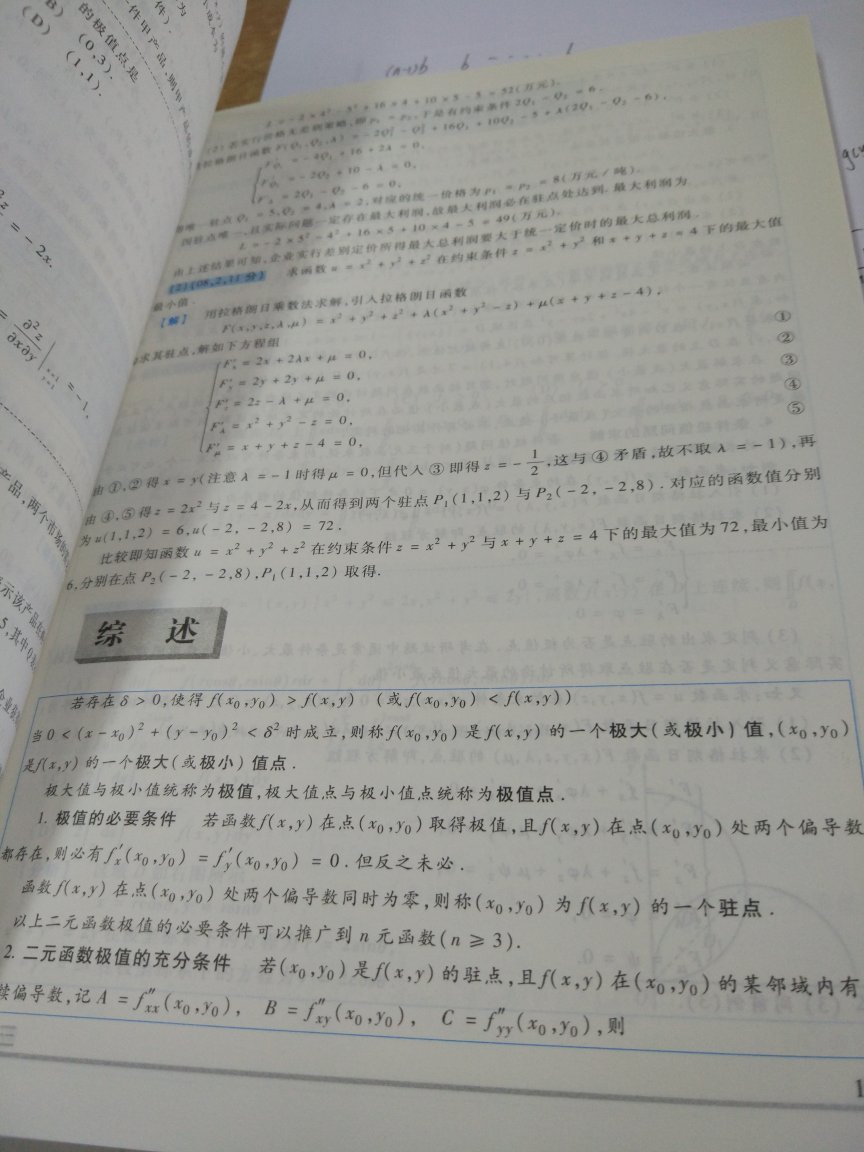 (B) (0,3).
(D) (1,1).
的极值点是
件甲产品,则甲产品
z = - 2x.
产品,两个市场的
示该产品在
(a-1)b b
L = - 2 × 4² - 5² + 16 × 4 + 10 × 5 - 5 = 52(万元).
(2) 若实行价格无差别策略,即 P₁ = P₂,于是有约束条件 2Q₁ - Q₂ = 6.
拉格朗日函数 F(Q₁,Q₂,λ) = - 2Q₁² - Q₂² + 16Q₁ + 10Q₂ - 5 + λ(2Q₁ - Q₂ - 6),
= - 4Q₁ + 16 + 2λ = 0,
= - 2Q₂ + 10 - λ = 0,
= 2Q₁ - Q₂ - 6 = 0,
唯一驻点 Q₁ = 5,Q₂ = 4,λ = 2,对应的统一价格为 P₁ = P₂ = 8(万元/吨).
因驻点唯一,且实际问题一定存在最大利润,故最大利润必在驻点处达到.最大利润为
L = - 2 × 5² - 4² + 16 × 5 + 10 × 4 - 5 = 49(万元).
由上述结果可知,企业实行差别定价所得最大总利润要大于统一定价时的最大总利润.
(2)(08,2,11分) 求函数 u = x² + y² + z² 在约束条件 z = x² + y² 和 x + y + z = 4 下的最大值
最小值.
【解】 用拉格朗日乘数法求解,引入拉格朗日函数
F(x,y,z,λ,μ) = x² + y² + z² + λ(x² + y² - z) + μ(x + y + z - 4),
求其驻点,解如下方程组
F′ₓ = 2x + 2λx + μ = 0, ①
F′_y = 2y + 2y + μ = 0, ②
F′_z = 2z - λ + μ = 0, ③
F′_λ = x² + y² - z = 0, ④
F′_μ = x + y + z - 4 = 0, ⑤
由 ①,② 得 x = y(注意 λ = - 1 时得 μ = 0,但代入 ③ 即得 z = - 1/2,这与 ④ 矛盾,故不取 λ = - 1),再
由 ④,⑤ 得 z = 2x² 与 z = 4 - 2x,从而得到两个驻点 P₁(1,1,2) 与 P₂(- 2, - 2,8). 对应的函数值分别
为 u(1,1,2) = 6,u(- 2, - 2,8) = 72.
比较即知函数 u = x² + y² + z² 在约束条件 z = x² + y² 与 x + y + z = 4 下的最大值为 72,最小值为
6,分别在点 P₂(- 2, - 2,8),P₁(1,1,2) 取得.
综 述
若存在 δ > 0,使得 f(x₀,y₀) > f(x,y) (或 f(x₀,y₀) < f(x,y))
当 0 < (x - x₀)² + (y - y₀)² < δ² 时成立,则称 f(x₀,y₀) 是 f(x,y) 的一个极大(或极小)值,(x₀,y₀)
是 f(x,y) 的一个极大(或极小)值点.
极大值与极小值统称为极值,极大值点与极小值点统称为极值点.
1. 极值的必要条件 若函数 f(x,y) 在点 (x₀,y₀) 取得极值,且 f(x,y) 在点 (x₀,y₀) 处两个偏导数
都存在,则必有 f′ₓ(x₀,y₀) = f′_y(x₀,y₀) = 0. 但反之未必.
函数 f(x,y) 在点 (x₀,y₀) 处两个偏导数同时为零,则称 (x₀,y₀) 为 f(x,y) 的一个驻点.
以上二元函数极值的必要条件可以推广到 n 元函数(n ⩾ 3).
2. 二元函数极值的充分条件 若 (x₀,y₀) 是 f(x,y) 的驻点,且 f(x,y) 在 (x₀,y₀) 的某邻域内有
续偏导数,记 A = f″ₓₓ(x₀,y₀), B = f″_xy(x₀,y₀), C = f″_yy(x₀,y₀),则